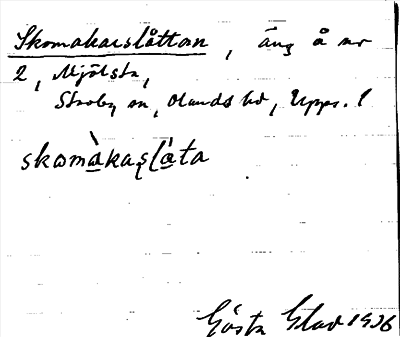 Skomakarslåttan, äng å nr
2, Mjölsta,
Skoby sn, Olands hd, Upps. l
skomàkaşlåta
Gösta Glad 1936